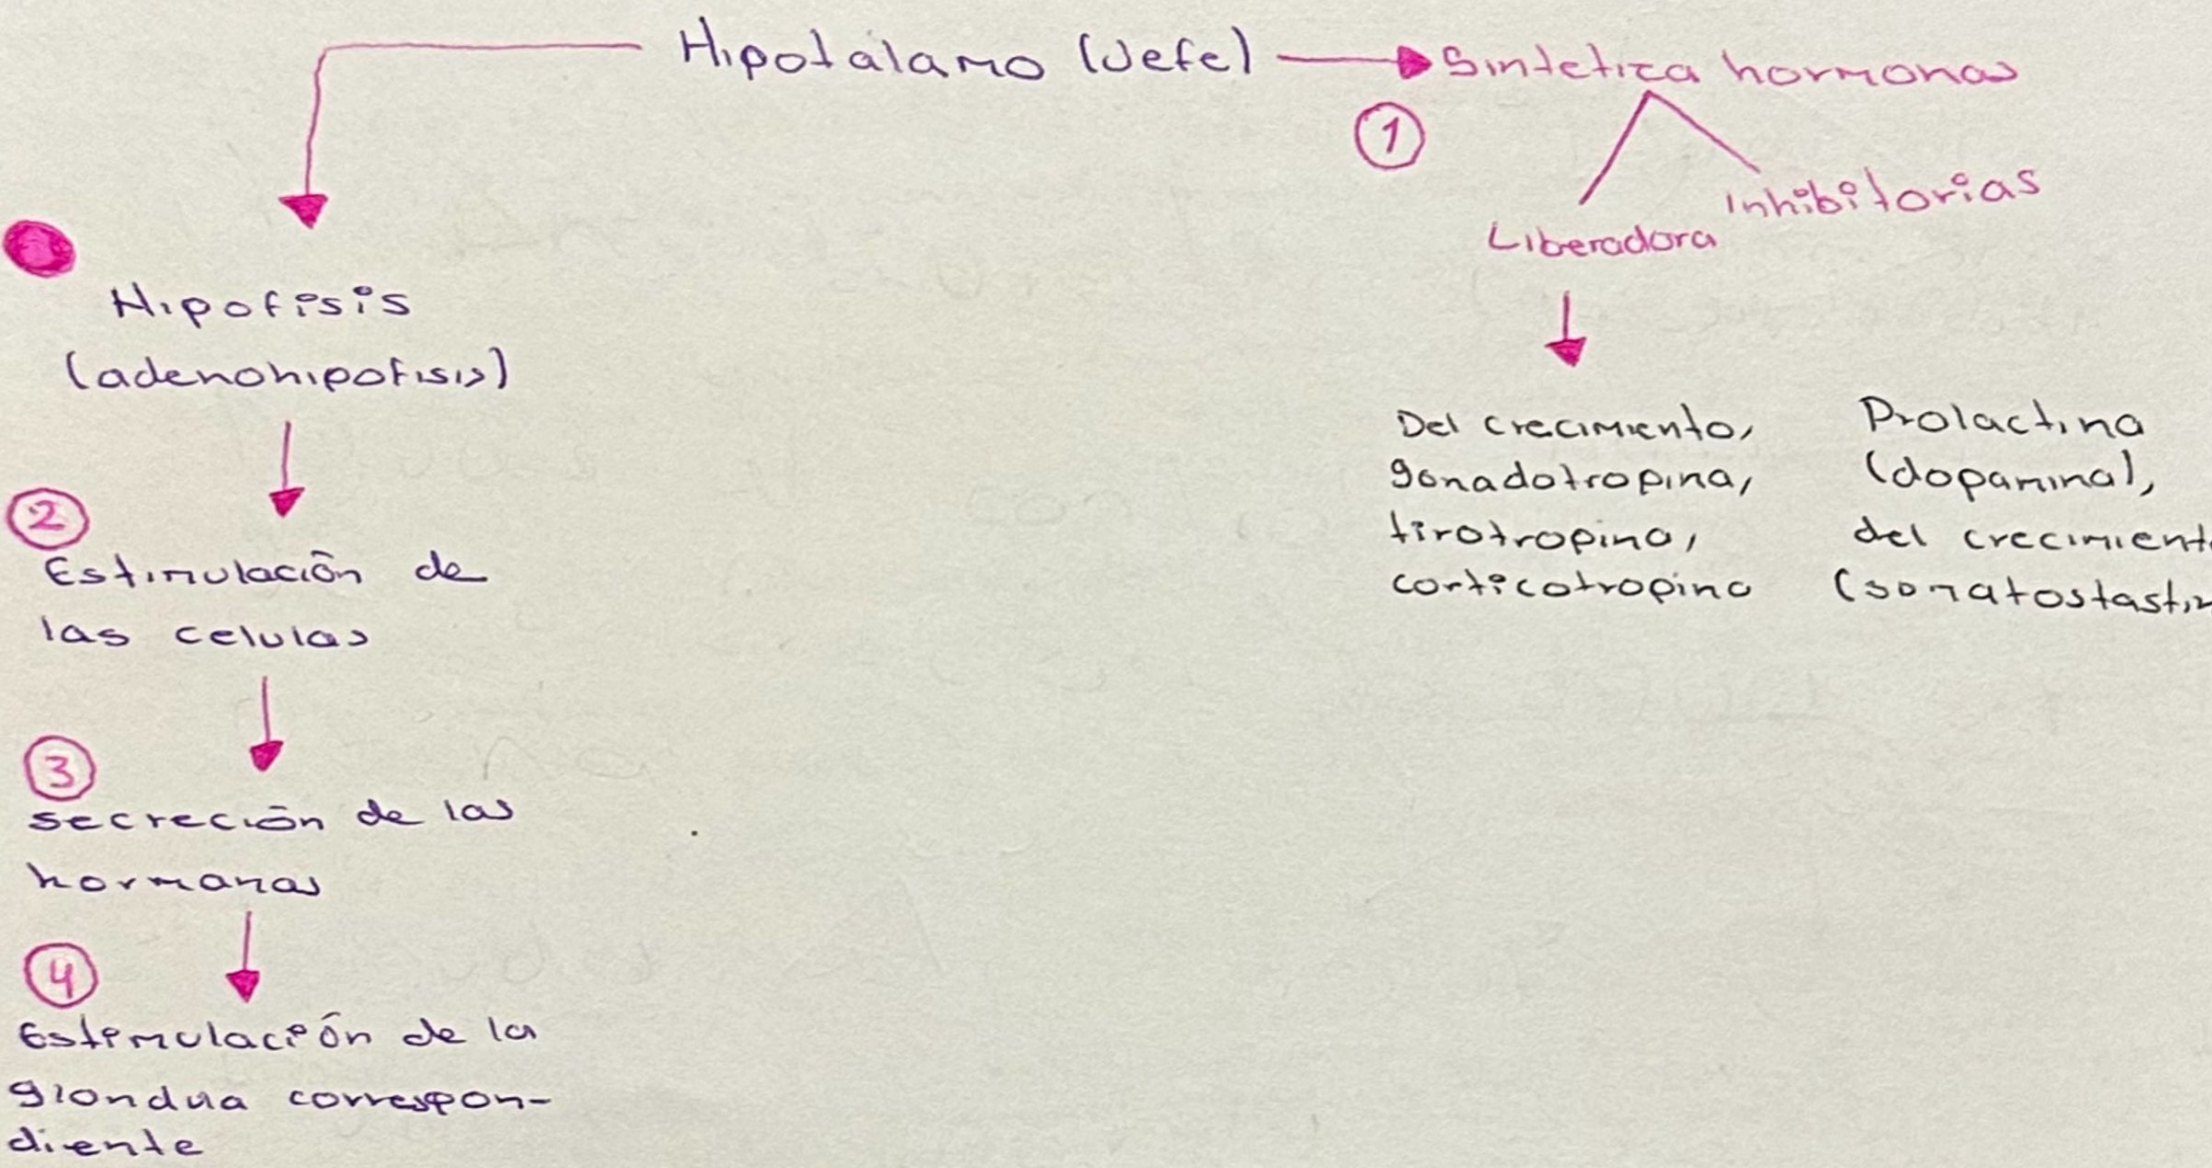 Hipotálamo (Jefe)
Sintetiza hormonas
1
Liberadora
Inhibitorias
Del crecimiento,
gonadotropina,
tirotropina,
corticotropina
Prolactina
(dopamina),
del crecimient
(somatostastin
Hipofisis
(adenohipofisis)
2
Estimulación de
las celulas
3
secreción de las
hormonas
4
Estimulación de la
glandula correspon-
diente